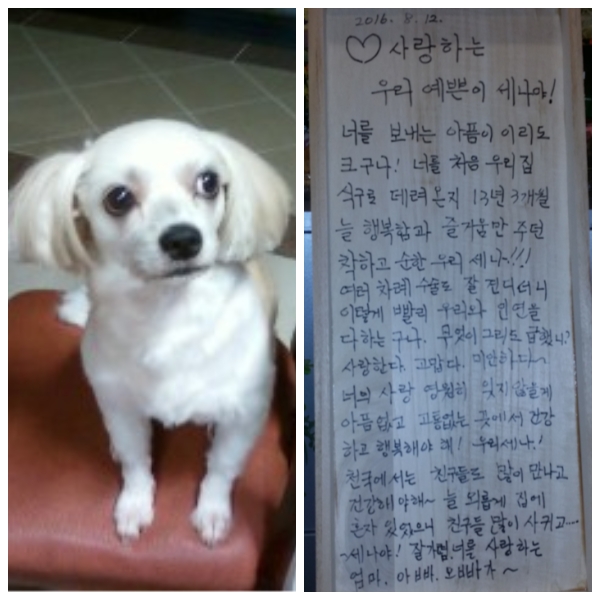 2016. 8. 12.
♡ 사랑하는
우리 예쁜이 세나야!
너를 보내는 아픔이 이리도
크구나! 너를 처음 우리집
식구로 데려온지 13년 3개월
늘 행복함과 즐거움만 주던
착하고 순한 우리 세나!!!
여러 차례 수술도 잘 견디더니
이렇게 빨리 우리와 인연을
다하는구나. 무엇이 그리도 급했니?
사랑한다. 고맙다. 미안하다~
너의 사랑 영원히 잊지않을게
아픔없고 고통없는 곳에서 건강
하고 행복해야 해! 우리세나!
천국에서는 친구들도 많이 만나고
건강해야해~ 늘 외롭게 집에
혼자 있었으니 친구들 많이 사귀고....
~세나야! 잘가렴. 너를 사랑하는
엄마. 아빠. 오빠가 ~